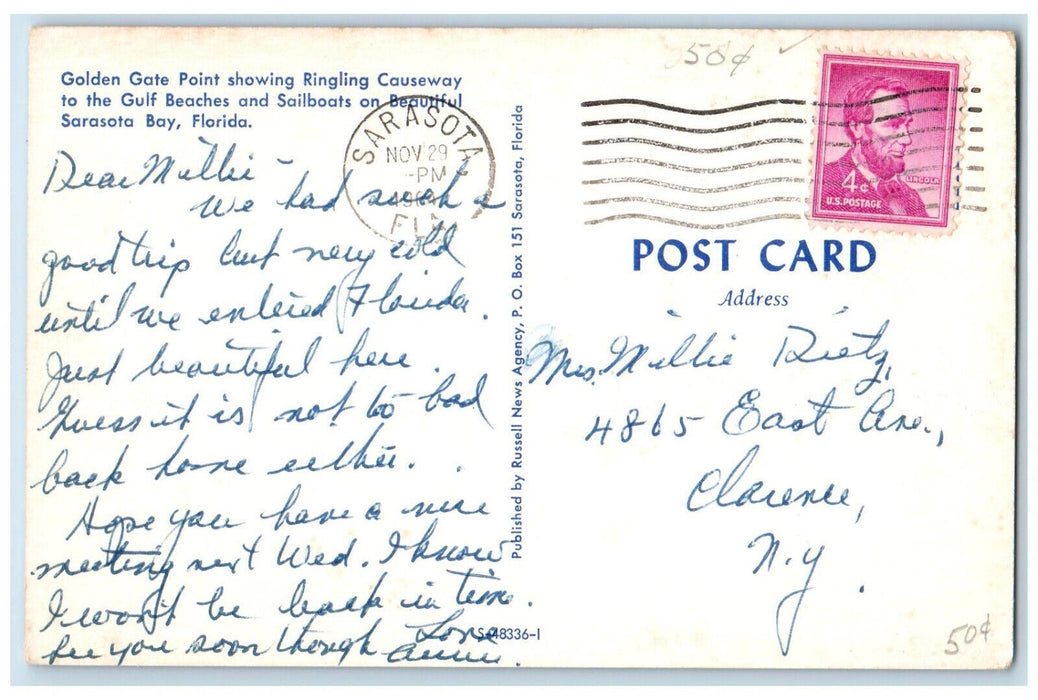 Golden Gate Point showing Ringling Causeway
to the Gulf Beaches and Sailboats on Beautiful
Sarasota Bay, Florida.
SARASOTA
NOV 29
PM
FLA
Dear Millie -
We had such a
good trip but very cold
until we entered Florida.
Just beautiful here.
Guess it is not too bad
back home either.
Hope you have a nice
meeting next Wed. I know
I won't be back in time.
See you soon though Love
Annie.
Published by Russell News Agency, P. O. Box 151 Sarasota, Florida
S-48336-1
50¢
LINCOLN
4¢
U.S. POSTAGE
POST CARD
Address
Mrs. Millie Dietz,
4865 East Ave.,
Clarence,
N.Y.
50¢